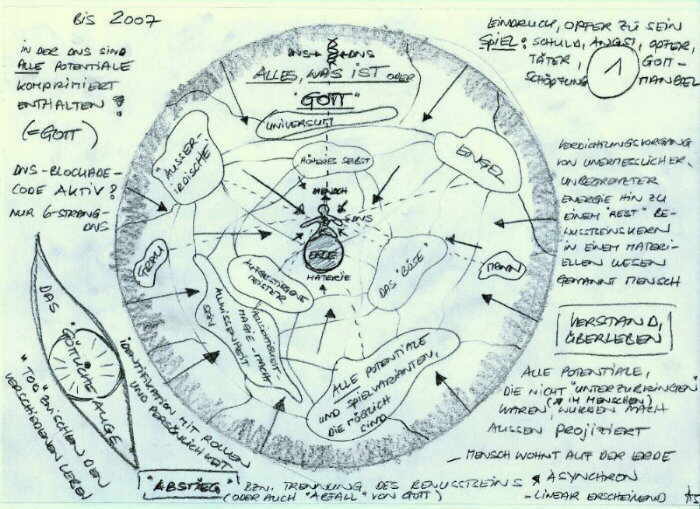 BIS 2007
IN DER DNS SIND
ALLE POTENTIALE
KOMPRIMIERT
ENTHALTEN!
(=GOTT)
DNS-BLOCKADE-
CODE AKTIV?
NUR 6-STRANG-
DNS
EINDRUCK, OPFER ZU SEIN
SPIEL: SCHULD, ANGST, OPFER,
TÄTER, GOTT-
SCHÖPFUNG MANGEL
1
DNS DNS
ALLES, WAS IST ODER
"GOTT"
UNIVERSUM
"AUSSER-
IRDISCHE"
HÖHERES SELBST
ENGEL
MENSCH
DNS
ERDE
MATERIE
FRAU
MANN
AUFGESTIEGENE
MEISTER
DAS "BÖSE"
ALLWISSENHEIT
MAGIE MACHT
ALLE POTENTIALE
UND SPIELVARIANTEN,
DIE MÖGLICH
SIND
VERDICHTUNGSVORGANG
VON UNERMESSLICHER,
UNBEGRENZTER
ENERGIE HIN ZU
EINEM "REST" BE-
WUSSTSEINSKERN
IN EINEM MATERI-
ELLEN WESEN
GENANNT MENSCH
VERSTAND,
ÜBERLEBEN
ALLE POTENTIALE,
DIE NICHT "UNTERZUBRINGEN"
(IM MENSCHEN)
WAREN, WURDEN NACH
AUSSEN PROJIZIERT
– MENSCH WOHNT AUF DER ERDE
ASYNCHRON
– LINEAR ERSCHEINEND
DAS "GÖTTLICHE" AUGE
"TOD" ZWISCHEN DEN
VERSCHIEDENEN LEBEN
IDENTIFIKATION MIT ROLLEN
UND PERSÖNLICHKEIT
"ABSTIEG" BZW. TRENNUNG DES BEWUSSTSEINS
(ODER AUCH "ABFALL" VON GOTT)